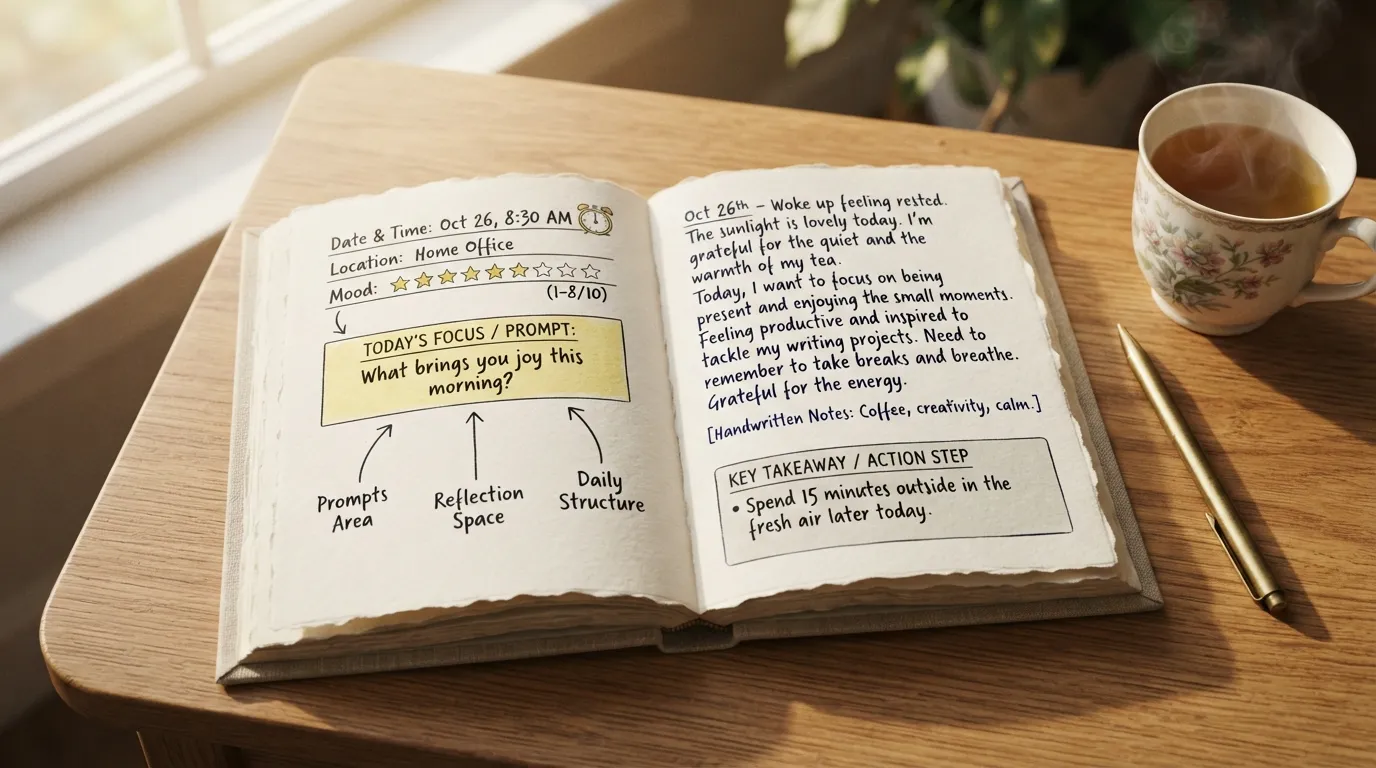 Date & Time: Oct 26, 8:30 AM
Location: Home Office
Mood:
(1-8/10)
TODAY'S FOCUS / PROMPT:
What brings you joy this
morning?
Prompts
Area
Reflection
Space
Daily
Structure
Oct 26th – Woke up feeling rested.
The sunlight is lovely today. I'm
grateful for the quiet and the
warmth of my tea.
Today, I want to focus on being
present and enjoying the small moments.
Feeling productive and inspired to
tackle my writing projects. Need to
remember to take breaks and breathe.
Grateful for the energy.
[Handwritten Notes: Coffee, creativity, calm.]
KEY TAKEAWAY / ACTION STEP
• Spend 15 minutes outside in the
fresh air later today.